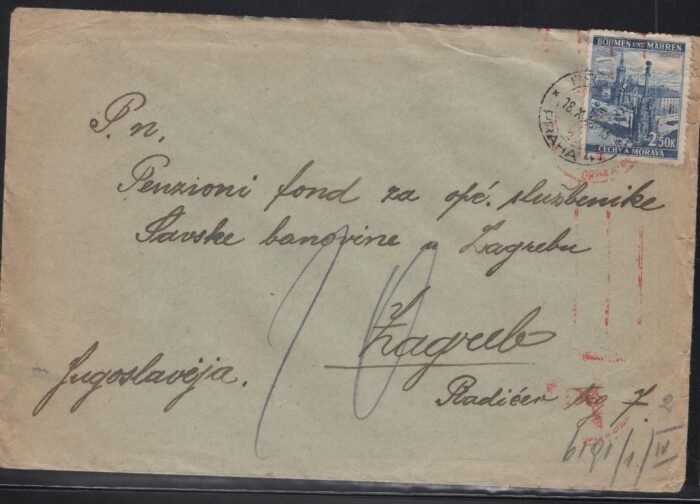 BÖHMEN UND MÄHREN
2.50K
ČECHY A MORAVA
PRAHA 41
P. n.
Penzioni fond za opć. službenike
Savske banovine u Zagrebu
Zagreb
Jugoslavija.
Radićev trg 7.
2
6191/1/IV